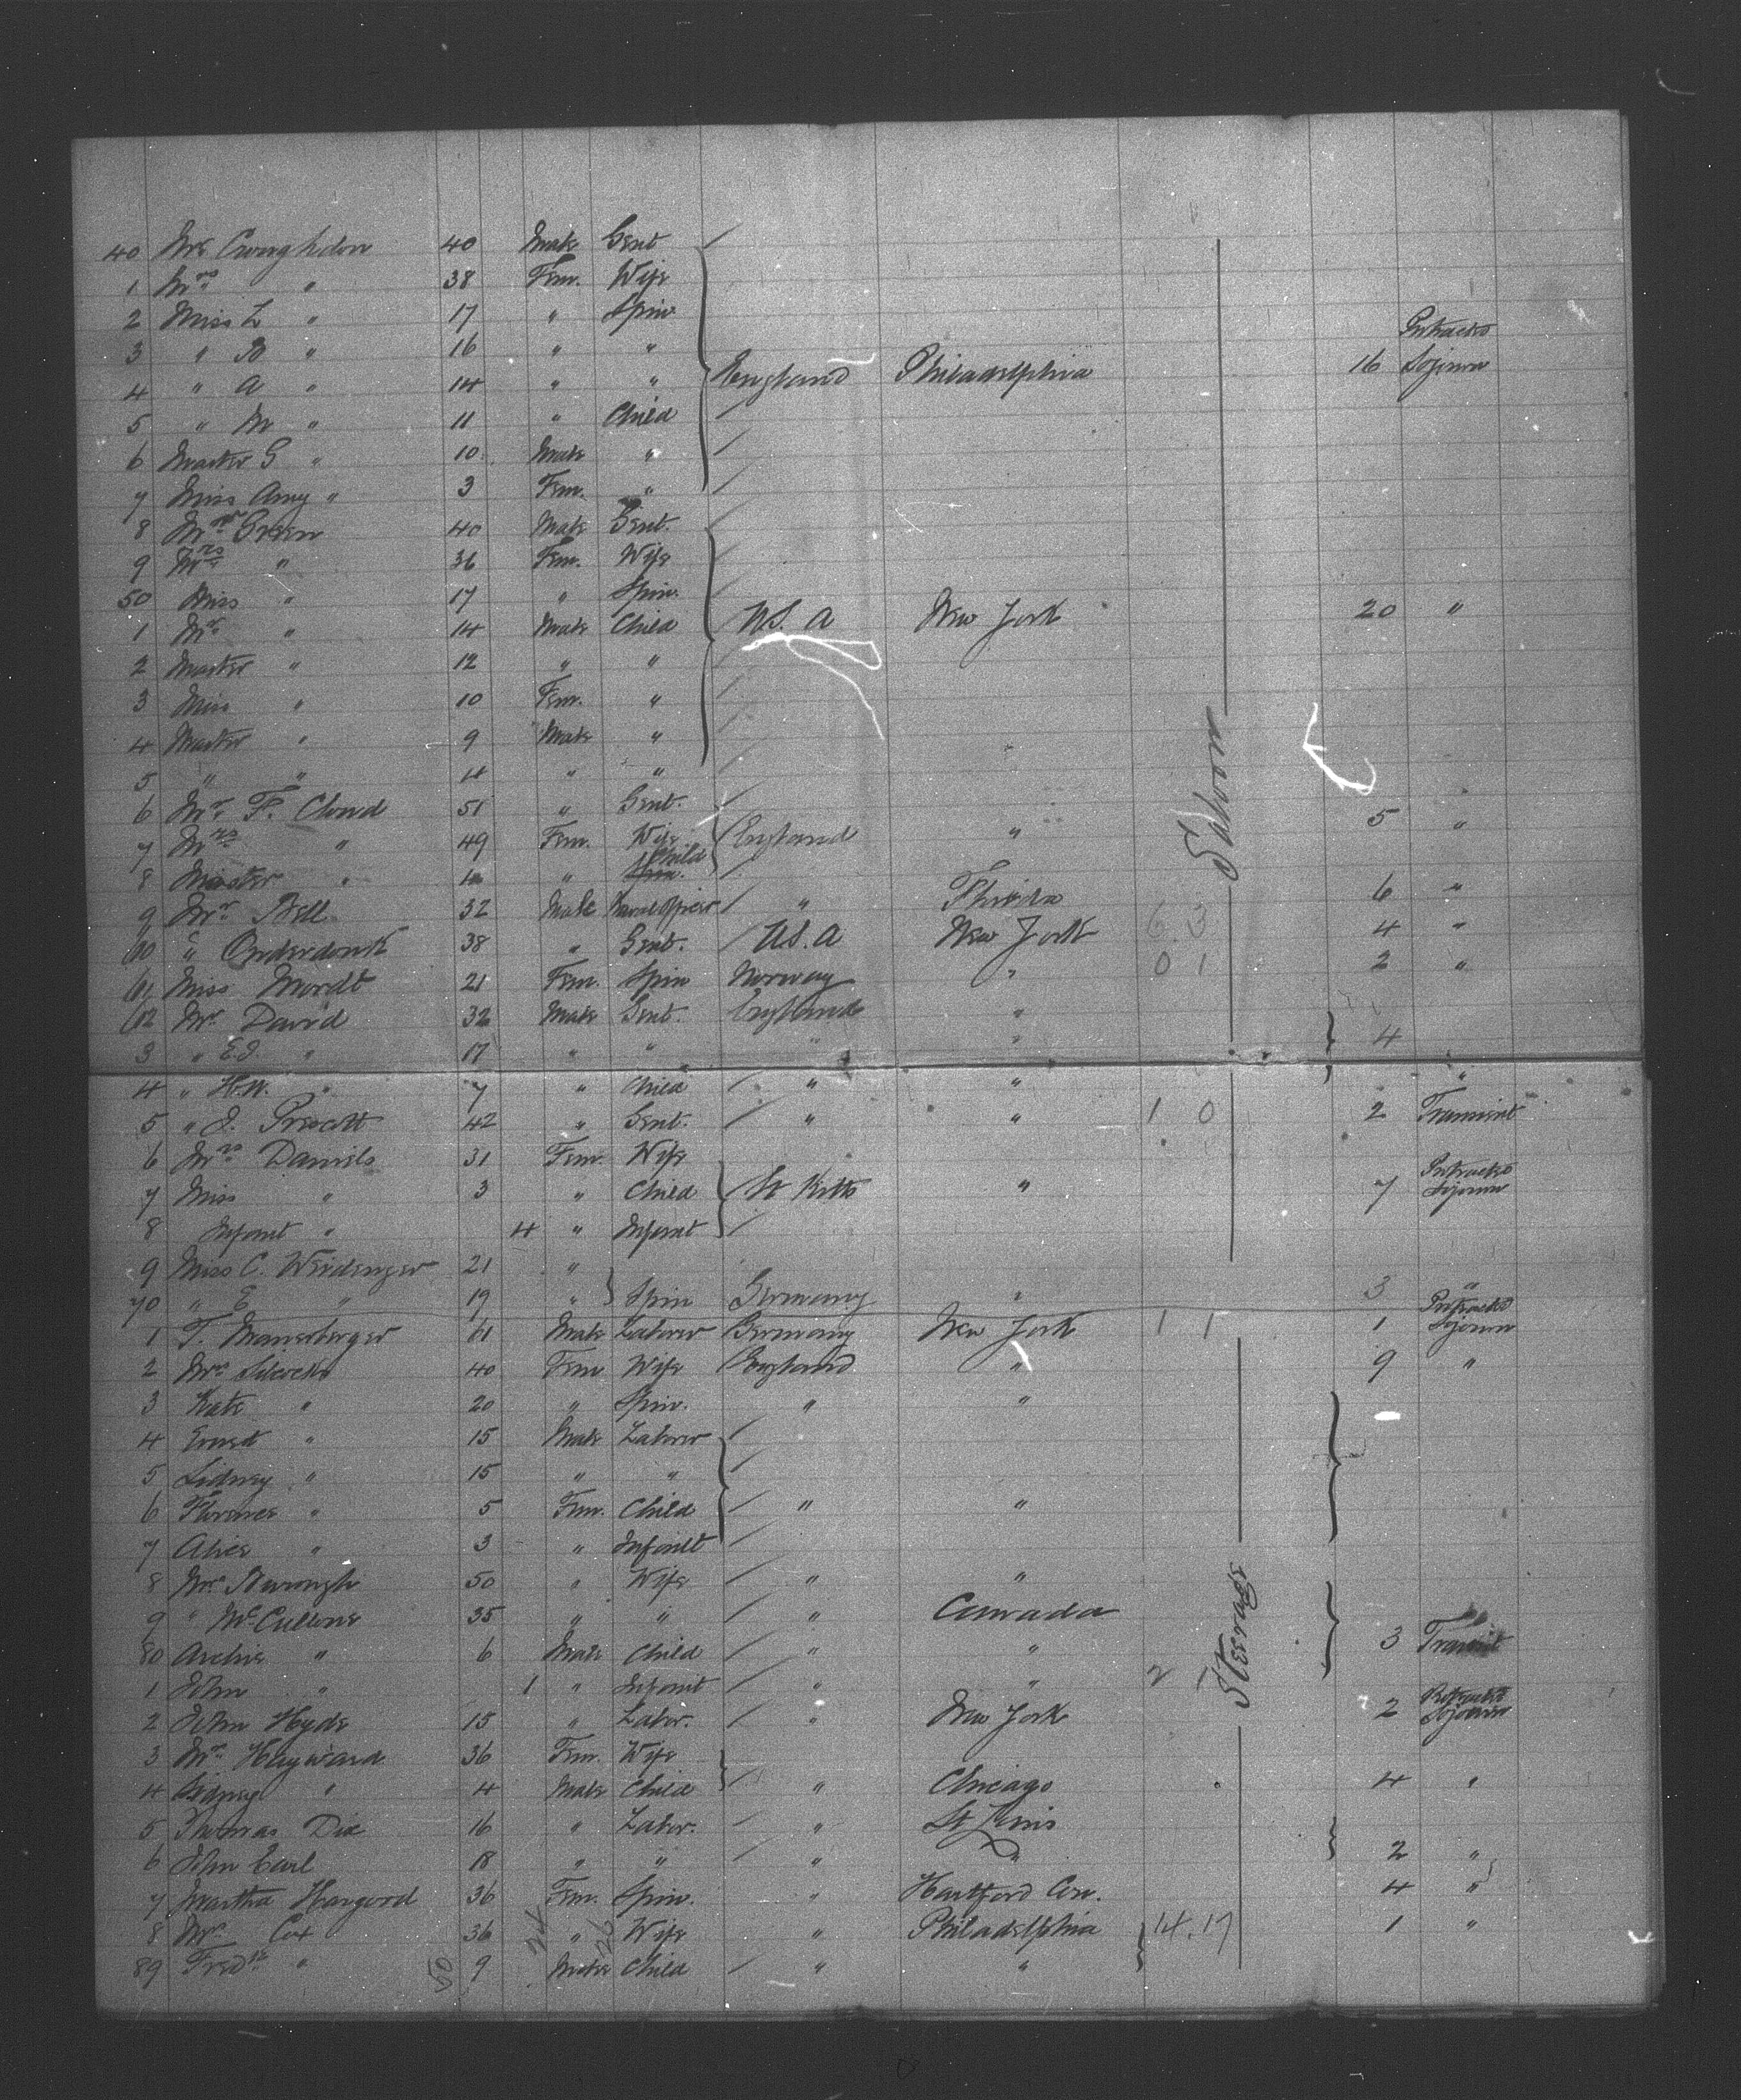 40 Mr Croughdon 40 Male Gent
1 Mrs " 38 Fem. Wife
2 Miss L " 17 " Spin
3 " B " 16 " "
4 " A " 14 " " England Philadelphia 16 Protracted Sojourn
5 " M " 11 " Child
6 Master G " 10 Male "
7 Miss Amy " 3 Fem. "
8 Mr Green 40 Male Gent.
9 Mrs " 36 Fem. Wife
50 Miss " 17 " Spin.
1 Mr " 14 Male Child U.S. A New York 20 "
2 Master " 12 " "
3 Miss " 10 Fem. "
4 Master " 9 Male "
5 " " 4 " "
6 Mr F. Cloud 51 " Gent.
7 Mrs " 49 Fem. Wife England " 5 "
8 Master " " Child
9 Mr Bell 32 Male Naval Officer " Florida 6 "
60 " Onderdonk 38 " Gent. U.S. A New York 6 3 4 "
61 Miss Mordt 21 Fem. Spin Norway " 0 1 2 "
62 Mr David 32 Male Gent. England " 4
3 " E.J. " 17 " " " "
4 " H.W. " 7 " Child " " "
5 " J. Prescott 42 " Gent. " " 1 0 2 Transient
6 Mrs Daniels 31 Fem. Wife
7 Miss " 3 " Child St Kitts " 7 Protracted Sojourn
8 Infant " 4 " Infant
9 Miss C. Weidenger 21 "
70 " E " 19 " Spin Germany " 3 "
Saloon
1 T. Manesberger 61 Male Laborer Germany New York 1 1 1 Protracted Sojourn
2 Mrs Silcocks 40 Fem Wife England " 9 "
3 Kate " 20 " Spin. " "
4 Ernest " 15 Male Laborer
5 Sidney " 15 " "
6 Florence " 5 Fem. Child " "
7 Alice " 3 " Infant
8 Mrs Burough 50 " Wife " "
9 " McCullone 35 " " " Canada
80 Archie " 6 Male Child " " 3 Transit
1 John " 1 " Infant " " 2
2 John Hyde 15 " Labor. " New York 2 Protracted Sojourn
3 Mrs Hayward 36 Fem. Wife
4 Sidney " 4 Male Child " Chicago 4 "
5 Thomas Dix 16 " Labor. " St Louis
6 John Earl 18 " " " " 2 "
7 Martha Hangord 36 Fem. Spin. " Hartford Con. 4 "
8 Mrs Cox 36 " Wife " Philadelphia 14. 17 1 "
89 Fredk " 9 Male Child " "
Steerage